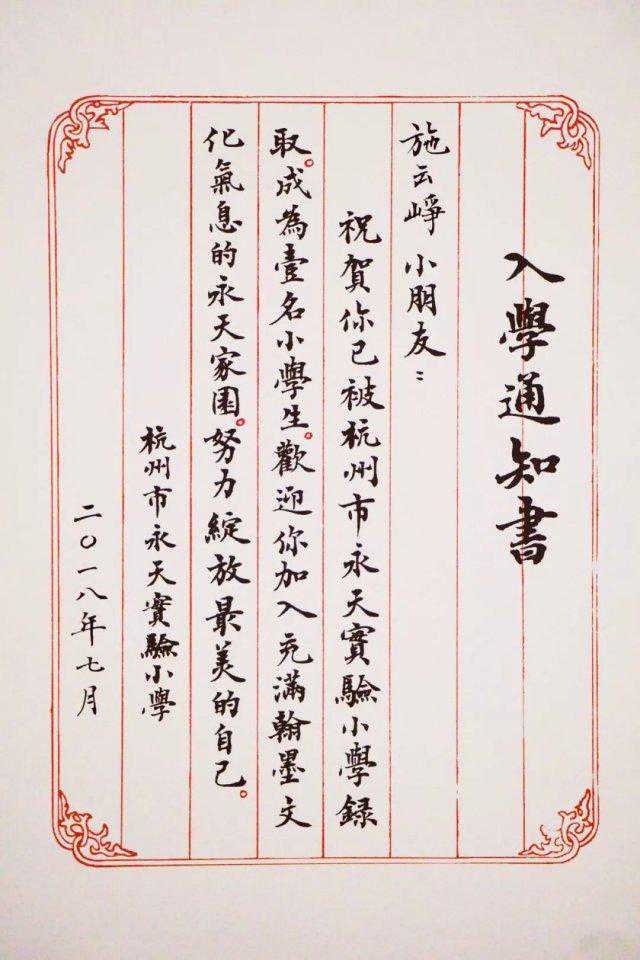 入學通知書
施云崢 小朋友：
祝賀你已被杭州市永天實驗小學録
取。成為壹名小學生。歡迎你加入充滿翰墨文
化氣息的永天家園。努力綻放最美的自己。
杭州市永天實驗小學
二〇一八年七月